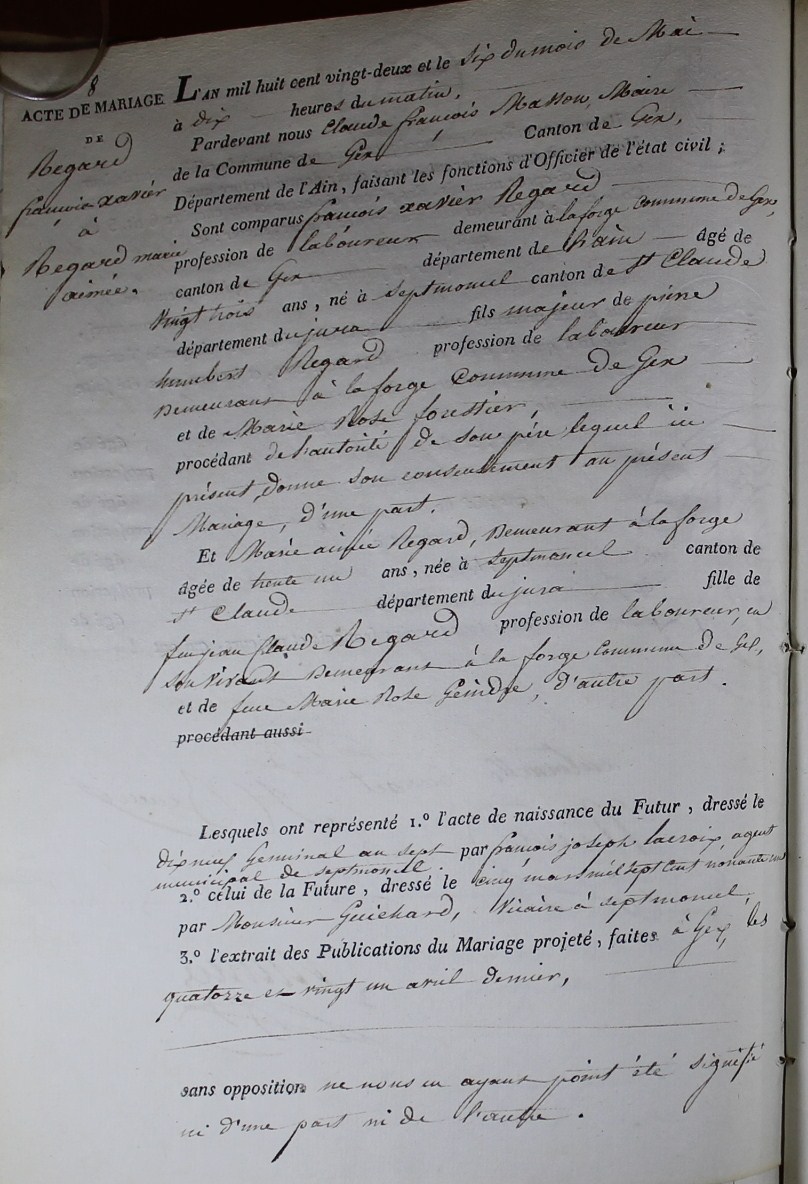 8
ACTE DE MARIAGE
DE
Regard
françois xavier
à
Regard marie
aimée.
L'AN mil huit cent vingt-deux et le six du mois de Mai
à dix heures du matin.
Pardevant nous Claude françois Masson, Maire
de la Commune de Gex, Canton de Gex,
Département de l'Ain, faisant les fonctions d'Officier de l'état civil ;
Sont comparus françois xavier Regard
profession de laboureur demeurant à la forge Commune de Gex,
canton de Gex département de l'ain âgé de
Vingt trois ans, né à Septmoncel canton de St Claude
département du jura fils majeur de pierre
humbert Regard profession de laboureur
Demeurant à la forge Commune de Gex
et de Marie Rose forestier,
procédant de l'autorité de son père lequel ici
présent, donne son consentement au présent
Mariage, d'une part.
Et Marie aimée Regard, Demeurant à la forge
âgée de trente un ans, née à Septmoncel canton de
St Claude département du jura fille de
feu jean Claude Regard profession de laboureur, en
son vivant Demeurant à la forge Commune de Gex,
et de feue Marie Rose Geindre, d'autre part.
procédant aussi
Lesquels ont représenté 1.º l'acte de naissance du Futur, dressé le
dix neuf Germinal an sept par françois joseph lacroix, agent
municipal de septmoncel.
2.º celui de la Future, dressé le cinq mars mil sept cent nonante un
par Monsieur Guichard, Vicaire à septmoncel,
3.º l'extrait des Publications du Mariage projeté, faites à Gex, les
quatorze et vingt un avril dernier,
sans opposition ne nous en ayant point été signifié
ni d'une part ni de l'autre.